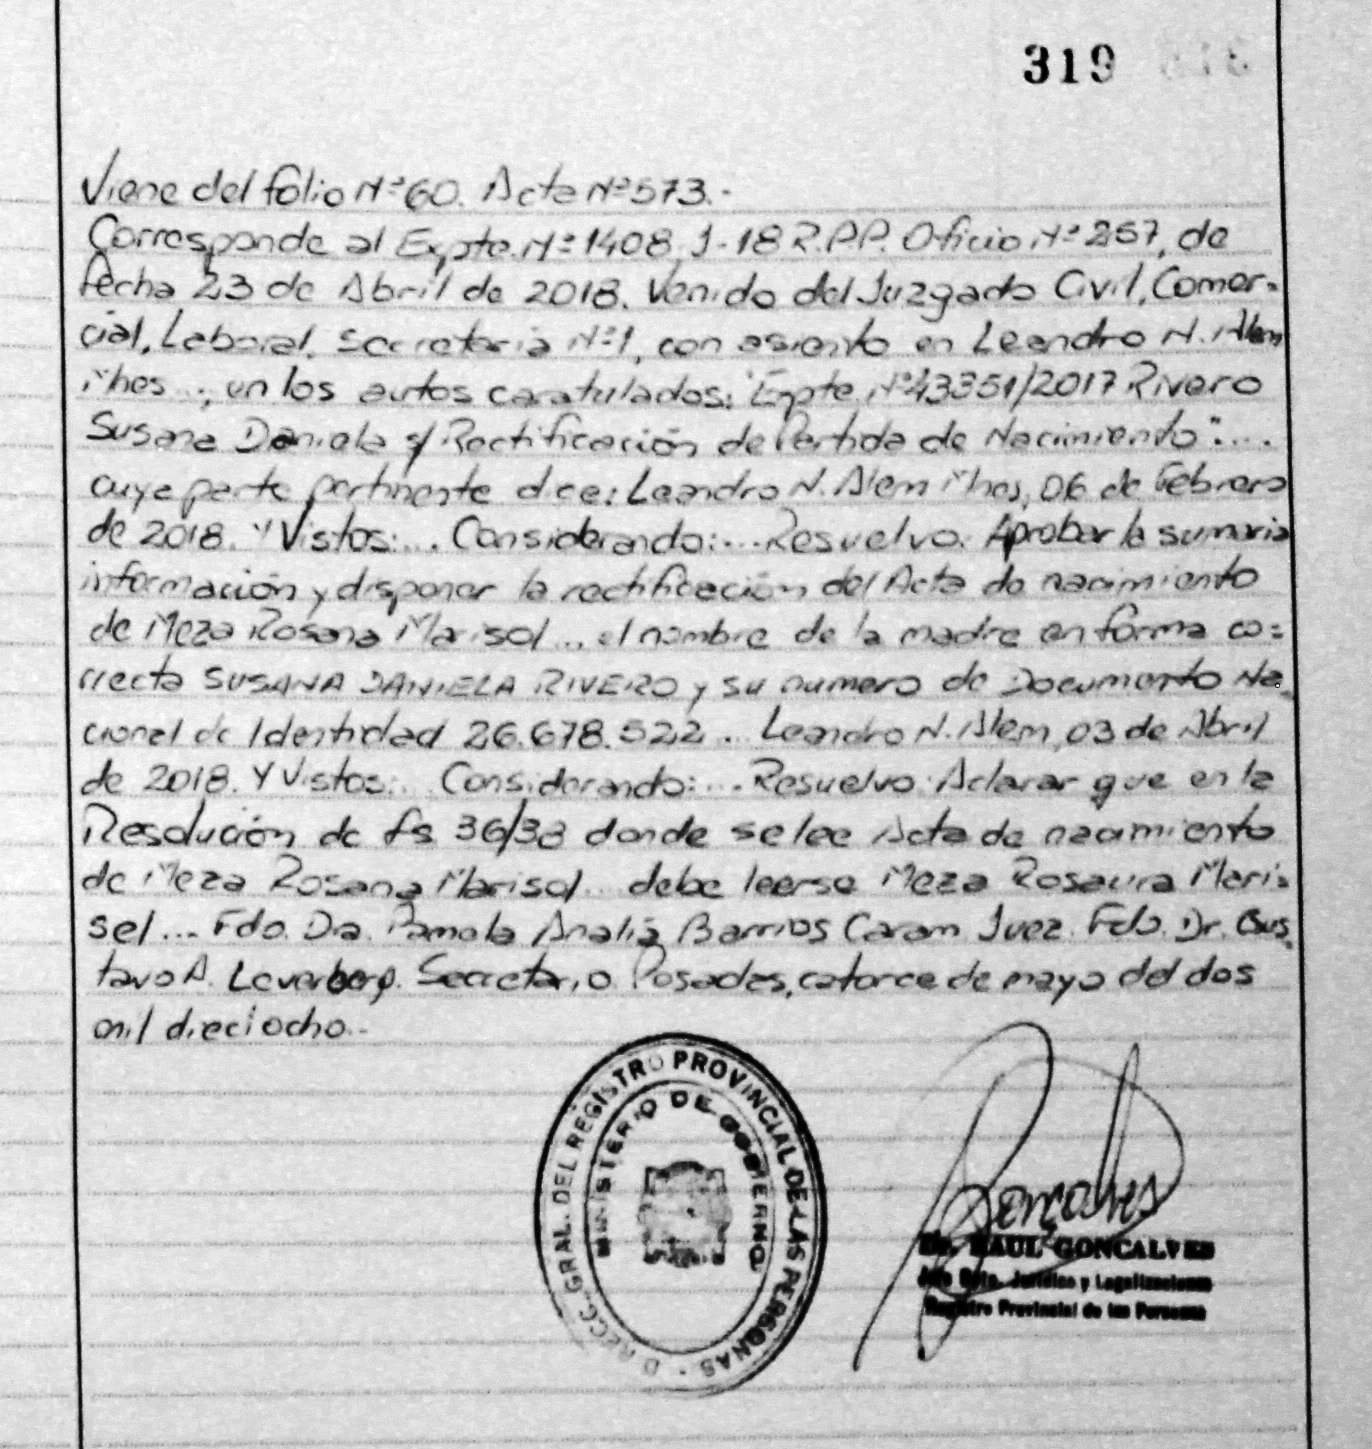 319
Viene del folio Nº 60. Acta Nº 573.-
Corresponde al Expte. Nº 1408, J-18 R.P.P. Oficio Nº 257, de
fecha 23 de Abril de 2018. Venido del Juzgado Civil, Comer-
cial, Laboral, Secretaria Nº 1, con asiento en Leandro N. Alem
Mnes...; en los autos caratulados: "Expte. Nº 43351/2017 Rivero
Susana Daniela s/ Rectificación de Partida de Nacimiento"....
cuya parte pertinente dice: Leandro N. Alem Mnes, 06 de Febrero
de 2018. Y Vistos:... Considerando:... Resuelvo: Aprobar la sumaria
información y disponer la rectificación del Acta de nacimiento
de Meza Rosana Marisol... el nombre de la madre en forma co=
rrecta SUSANA DANIELA RIVERO y su numero de Documento Na-
cional de Identidad 26.678.522... Leandro N. Alem, 03 de Abril
de 2018. Y Vistos:... Considerando:... Resuelvo: Aclarar que en la
Resolución de fs 36/38 donde se lee Acta de nacimiento
de Meza Rosana Marisol... debe leerse Meza Rosaura Mari-
sel... Fdo. Dra. Pamela Analia Barrios Caram Juez. Fdo. Dr. Gus-
tavo A. Secretario. Posadas, catorce de mayo del dos
mil dieciocho.-
DIRECC. GRAL. DEL REGISTRO PROVINCIAL DE LAS PERSONAS
MINISTERIO DE GOBIERNO
Goncalves
Dr. RAUL GONCALVES
Jefe Dpto. Jurídico y Legalizaciones
Registro Provincial de las Personas